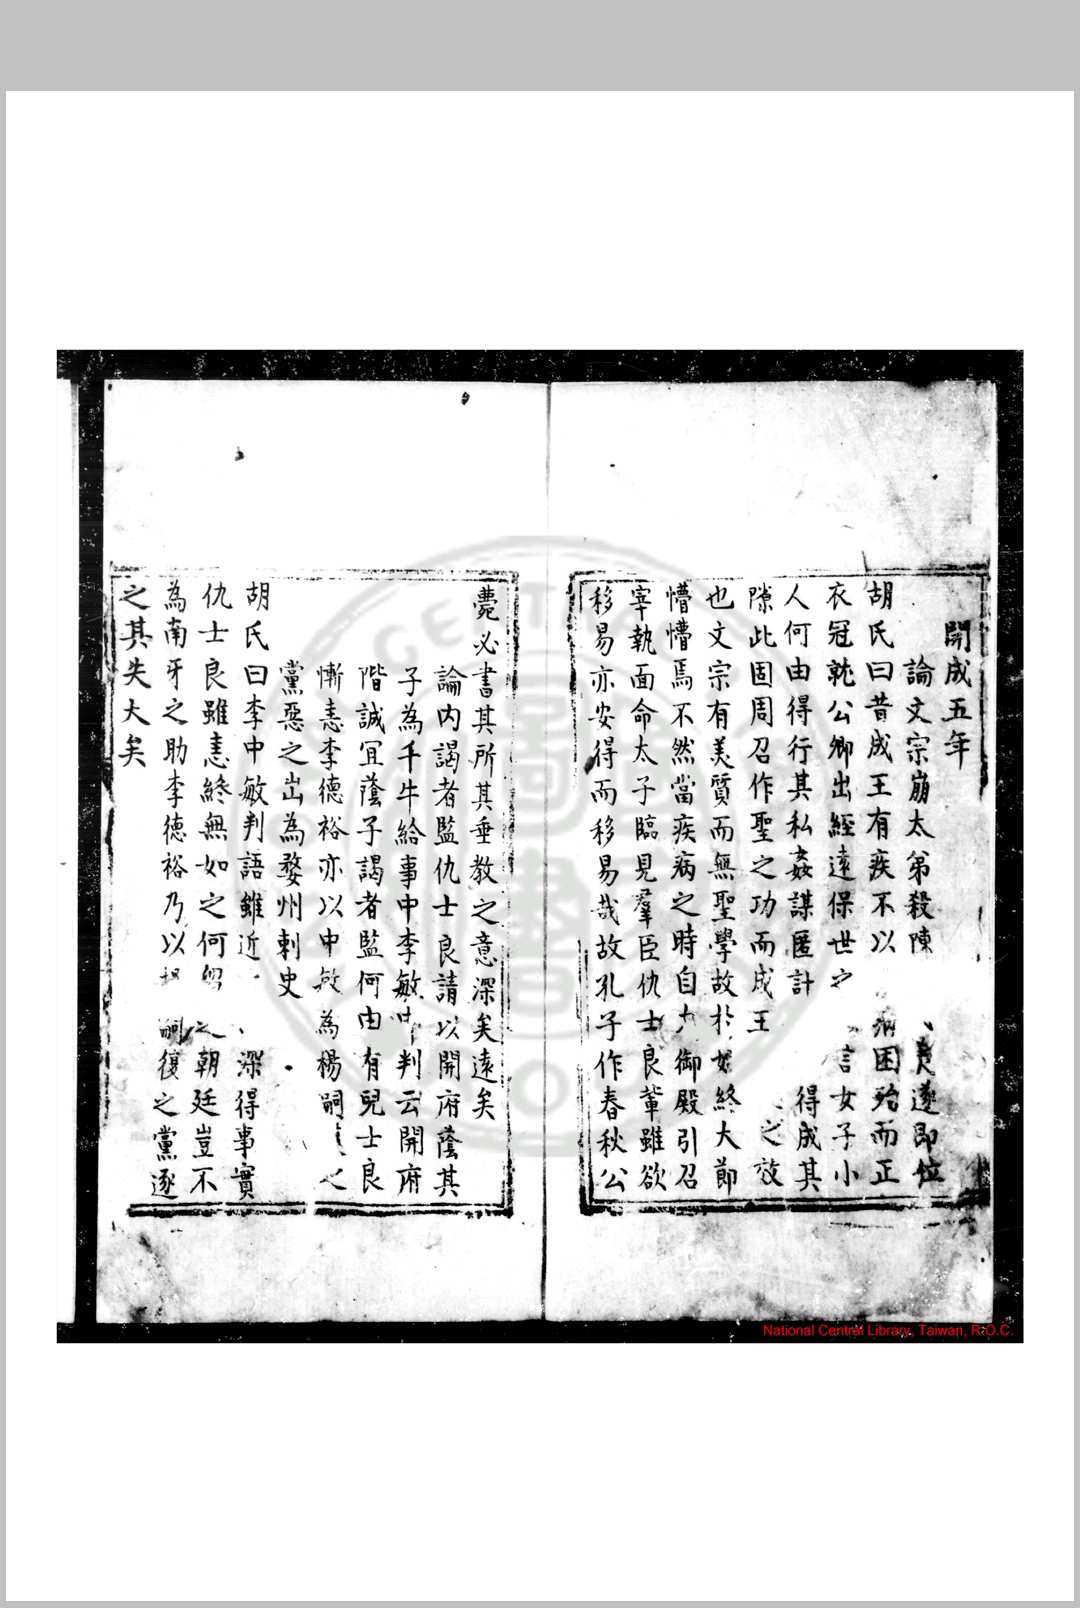 開成五年
論文宗崩太弟殺陳遂即位
胡氏曰昔成王有疾不以困殆而正
衣冠就公卿出經遠保世之言女子小
人何由得行其私姦謀匿計得成其
隙此固周召作聖之功而成王之效
也文宗有美質而無聖學故於始終大節
懵懵焉不然當疾病之時自力御殿引召
宰執面命太子臨見羣臣仇士良輩雖欲
移易亦安得而移易哉故孔子作春秋公
薨必書其所其垂教之意深矣遠矣
論內謁者監仇士良請以開府蔭其
子為千牛給事中李敏中判云開府
階誠宜蔭子謁者監何由有兒士良
慚恚李德裕亦以中敏為楊嗣之
黨惡之出為婺州刺史
胡氏曰李中敏判語雖近深得事實
仇士良雖恚終無如之何朝廷豈不
為南牙之助李德裕乃以嗣復之黨逐
之其失大矣
National Central Library, Taiwan, R.O.C.